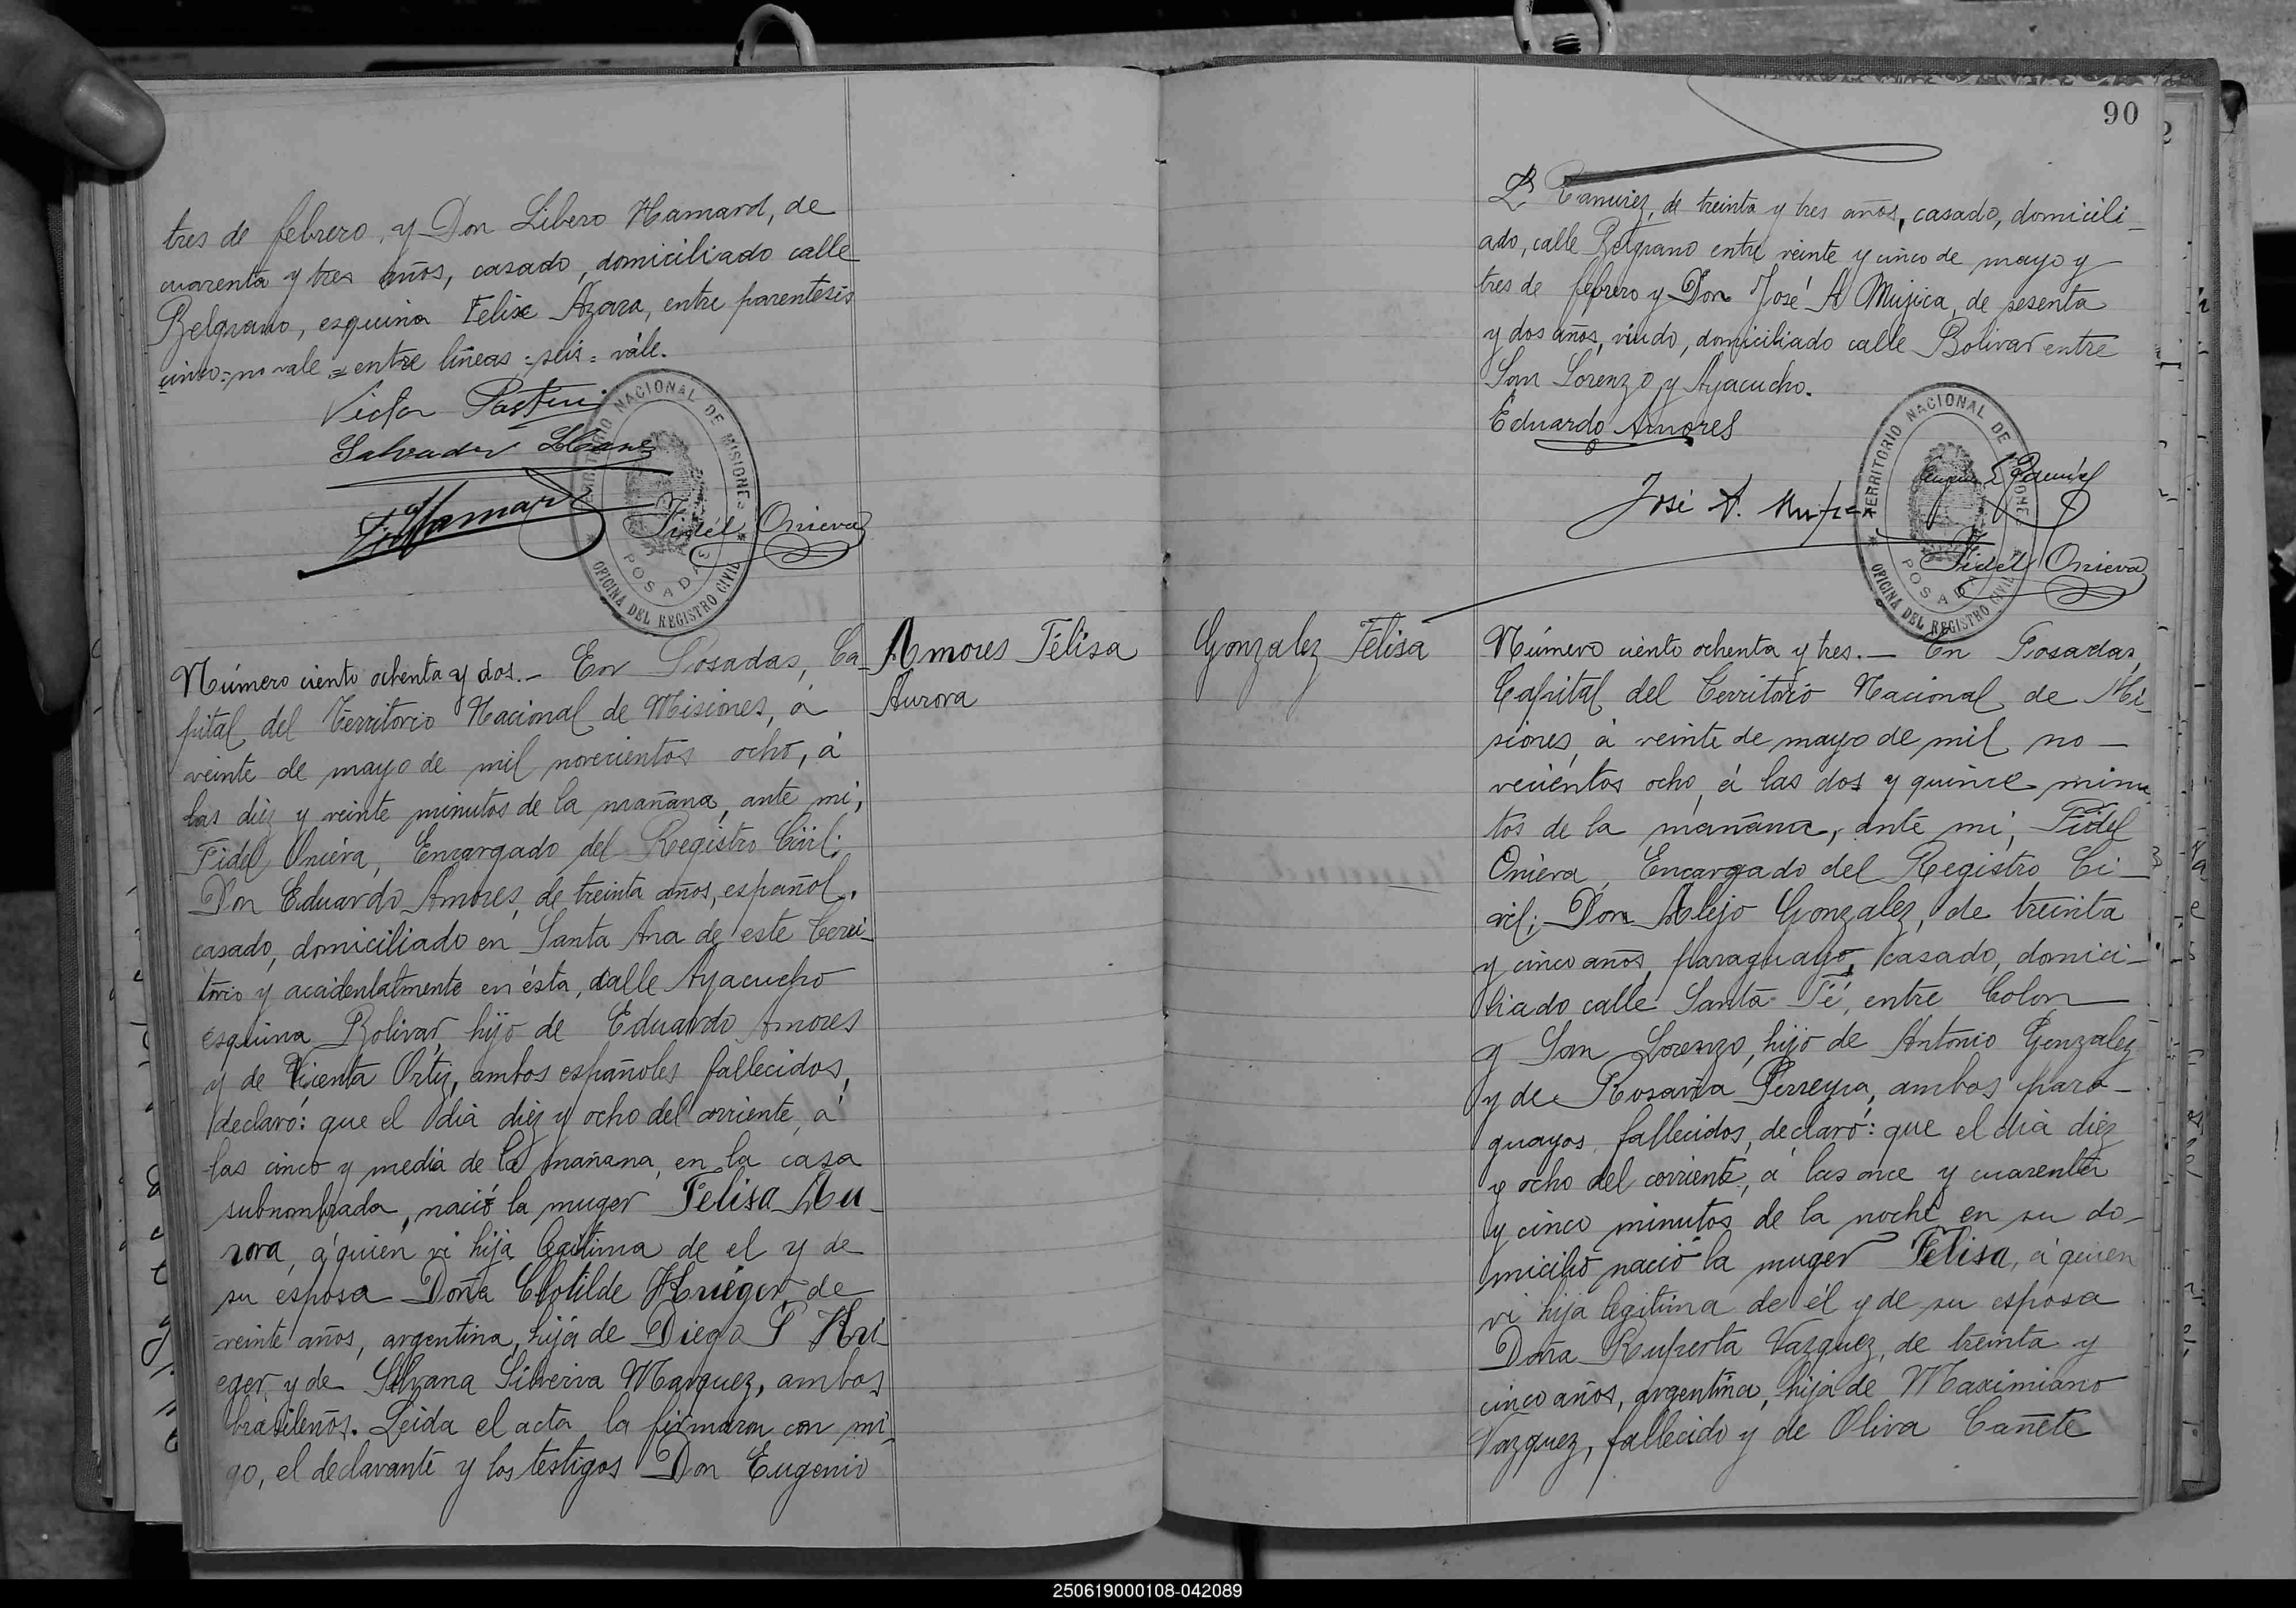 tres de febrero, y Don Libero Hamard, de
cuarenta y tres años, casado, domiciliado calle
Belgrano, esquina Felix Azara, entre parentesis
cinco = no vale = entre lineas = seis = vale.
Victor
Salvador
TERRITORIO NACIONAL DE MISIONES
Fidél Oniéva
POSADAS
OFICINA DEL REGISTRO CIVIL
Amores Félisa
Aurora
Número ciento ochenta y dos.- En Posadas, Ca-
pital del Territorio Nacional de Misiones, á
veinte de mayo de mil novecientos ocho, á
las diez y veinte minutos de la mañana, ante mi,
Fidel Oniéva, Encargado del Registro Civil;
Don Eduardo Amores, de treinta años, español,
casado, domiciliado en Santa Ana de este Terri-
torio y acidentalmente en ésta, calle Ayacucho
esquina Bolivar, hijo de Eduardo Amores
y de Vicenta Ortiz, ambos españoles fallecidos,
declaró: que el dia diez y ocho del corriente, á
las cinco y media de la mañana, en la casa
subnombrada, nació la muger Felisa Au-
rora, á quien vi hija legitima de el y de
su esposa Doña Clotilde Kruéger, de
veinte años, argentina, hija de Diego P Kru
eger y de Silvana Silveriva Marquez, ambos
brasileños. Leida el acta la firmaron con mi-
go, el declarante y los testigos Don Eugenio
90
L. Ramirez, de treinta y tres años, casado, domicili-
ado, calle Belgrano entre veinte y cinco de mayo y
tres de febrero y Don José A Mujica, de sesenta
y dos años, viudo, domiciliado calle Bolivar entre
San Lorenzo y Ayacucho.
Eduardo Amores
TERRITORIO NACIONAL DE MISIONES
Eugenio L Ramirez
José A. Mujica
Fidél Oniéva
POSADAS
OFICINA DEL REGISTRO CIVIL
Gonzalez Félisa
Número ciento ochenta y tres.- En Posadas,
Capital del Territorio Nacional de Mi-
siones, á veinte de mayo de mil no-
vecientos ocho, á las dos y quince minu
tos de la mañana, ante mi, Fidel
Oniéva, Encargado del Registro Ci-
vil; Don Alejo Gonzalez, de treinta
y cinco años, paraguayo, casado, domici-
liado calle Santa Fé, entre Colon
y San Lorenzo, hijo de Antonio Gonzalez
y de Rosaria Perreyra, ambos para-
guayos fallecidos, declaró: que el dia diez
y ocho del corriente, á las once y cuarenta
y cinco minutos de la noche en su do-
micilio nació la muger Félisa, á quien
vi hija legitima de él y de su esposa
Doña Ruperta Vazquez, de treinta y
cinco años, argentina, hija de Maximiano
Vazquez, fallecido y de Oliva Cañete
250619000108-042089